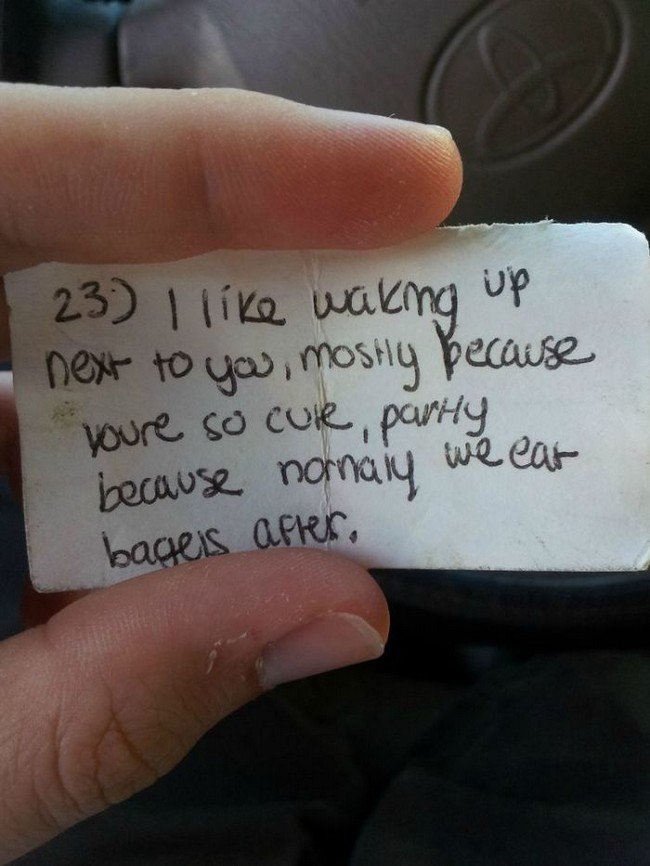 23.) I like waking up
next to you, mostly because
youre so cute, partly
because normaly we eat
bagels after.